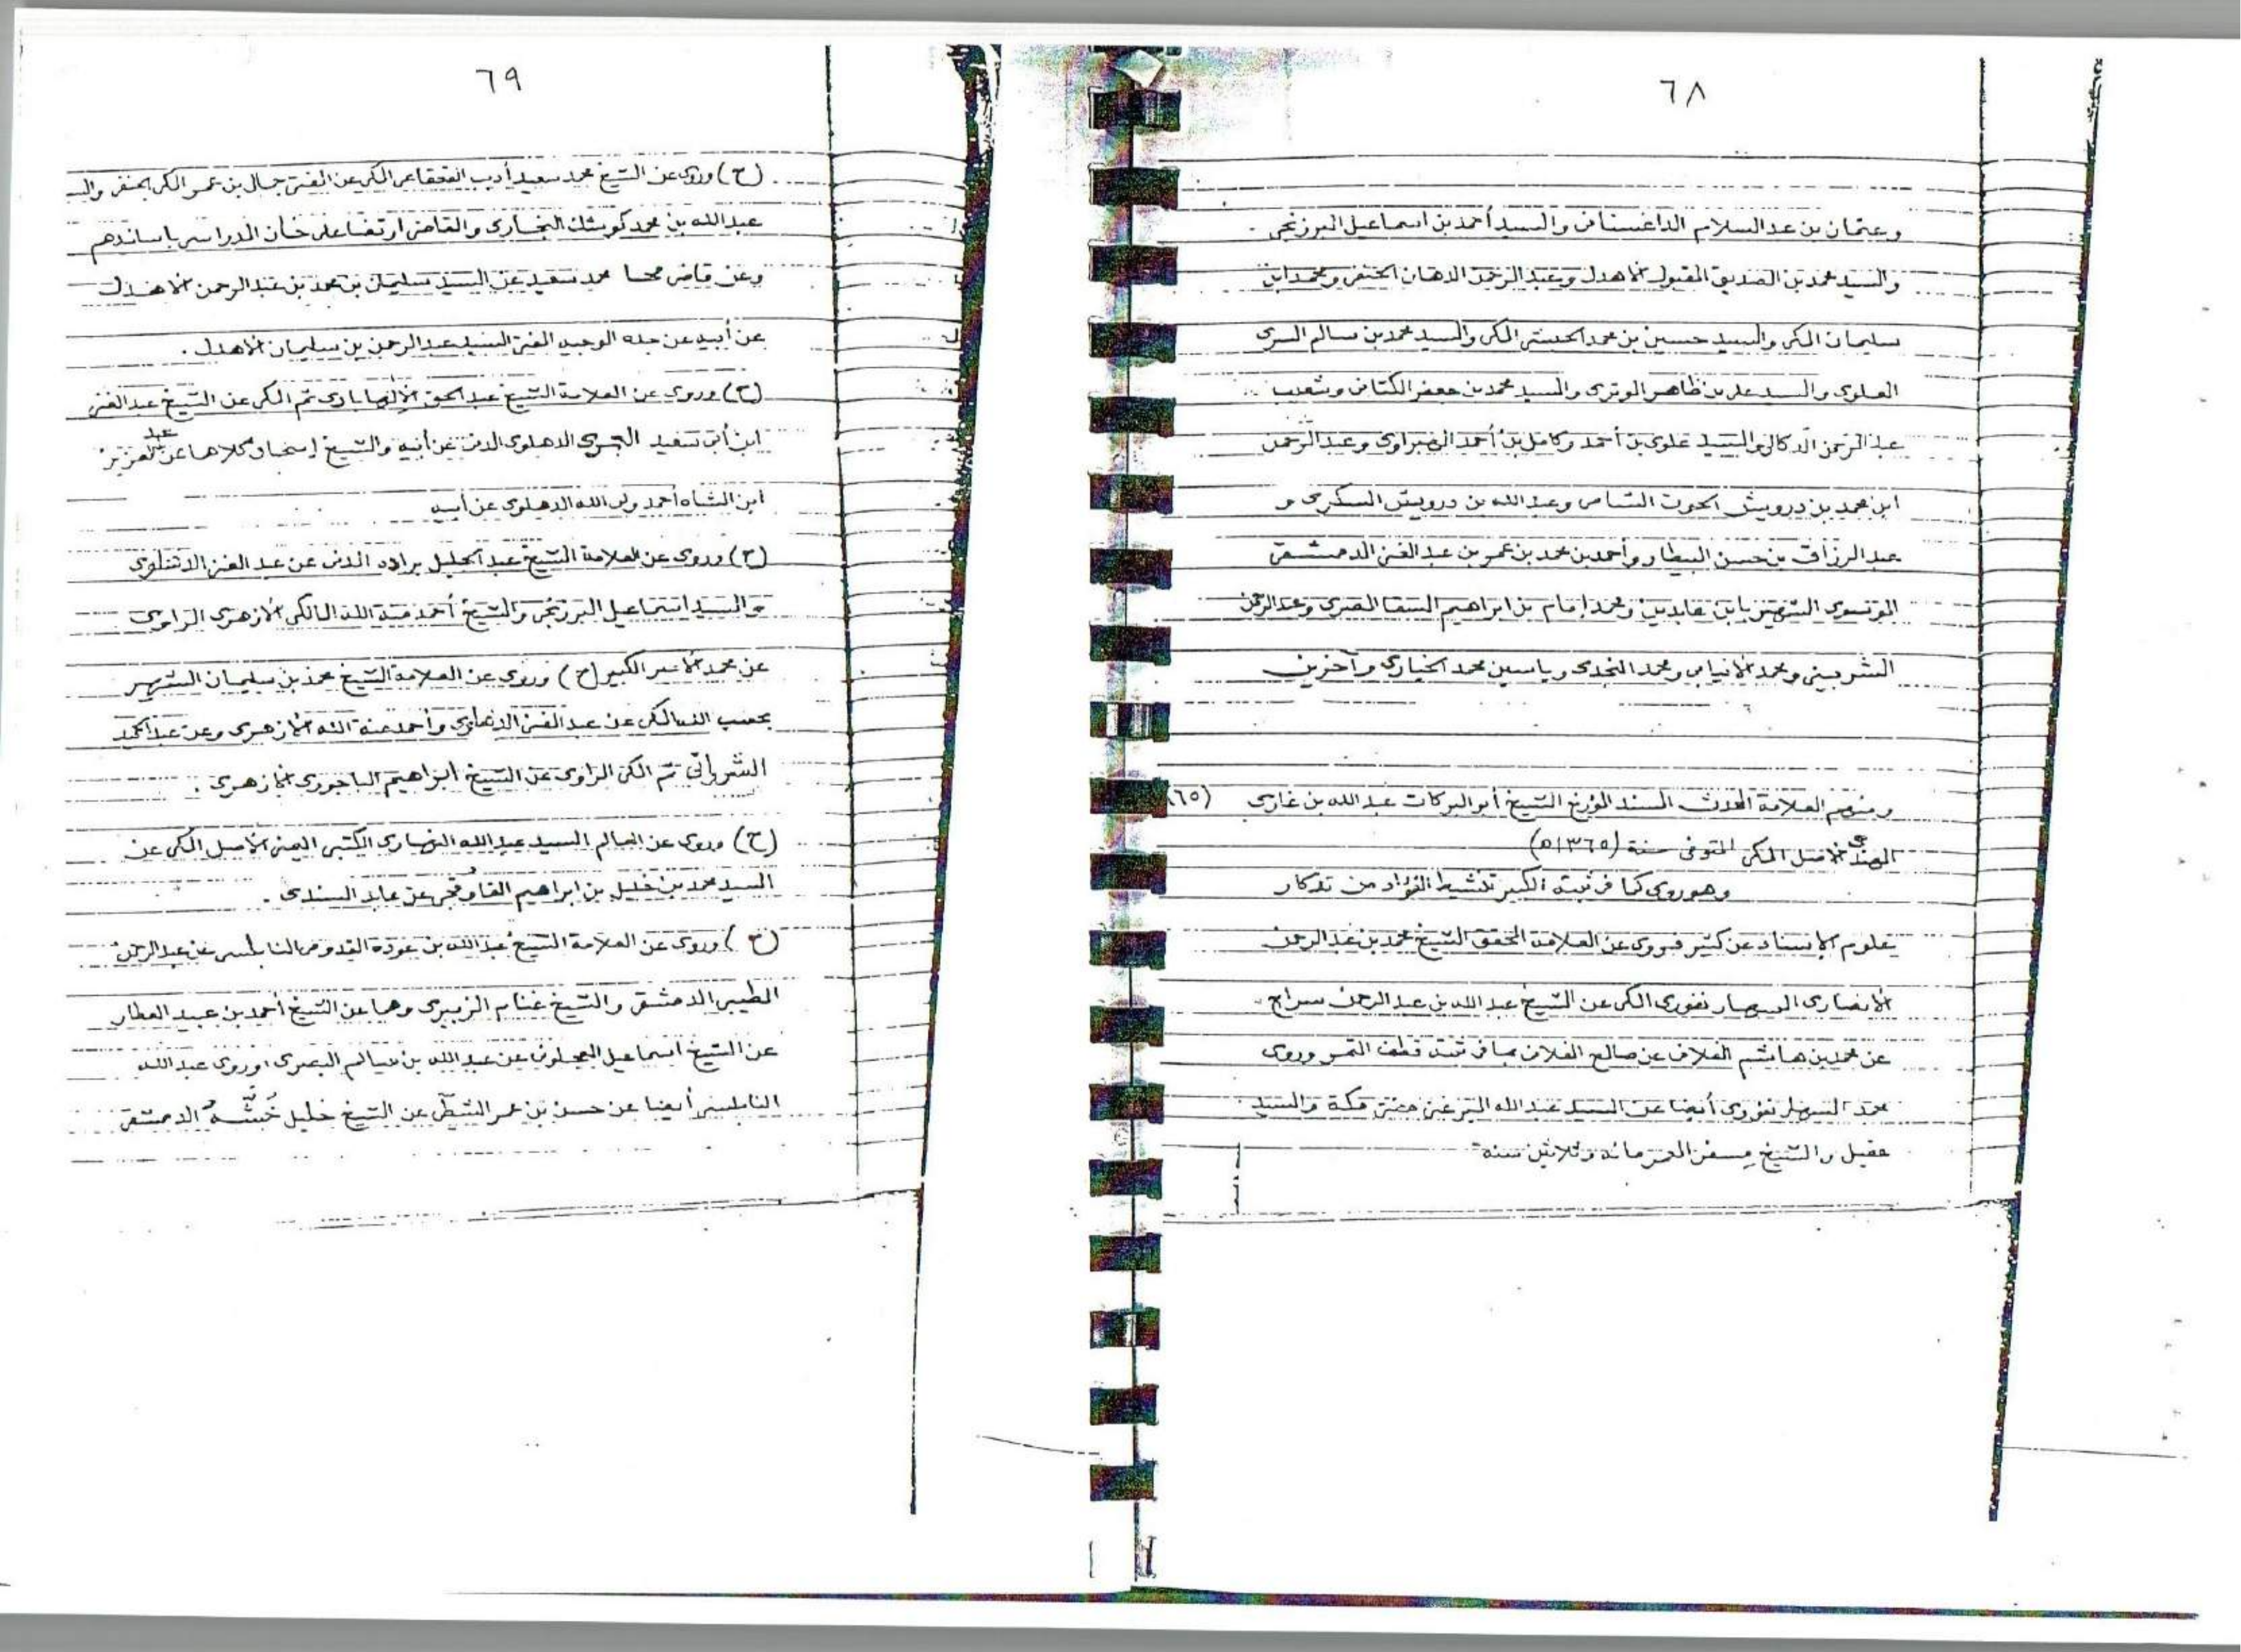 ٦٨
وعثمان بن عبد السلام الداغستاني والسيد أحمد بن اسماعيل البرزنجي
والسيد محمد بن الصديق المقبول الأهدل وعبد الرحمن الدهان الحنفي ومحمد ابن
سليمان المكي والسيد حسين بن محمد الحبشي المكي والسيد محمد بن سالم السري
العلوي والسيد علي بن ظاهر الوتري والسيد محمد بن جعفر الكتاني وشعيب
عبد الرحمن الدكالي والسيد علوي بن أحمد وكامل بن أحمد الهبراوي وعبد الرحمن
ابن محمد بن درويش الحوت الشامي وعبد الله بن درويش السكري و
عبد الرزاق بن حسن البيطار وأحمد بن محمد بن عمر بن عبد الغني الدمشقي
الشهير بابن عابدين ومحمد إمام بن ابراهيم السقا المصري وعبد الرحمن
الشربيني ومحمد الأنبابي ومحمد النجدي وياسين محمد الخياري وآخرين
ومنهم العلامة المحدث المسند المؤرخ الشيخ أبو البركات عبد الله بن غازي (٦٥)
الهندي الأصل المكي المتوفى سنة (١٣٦٥ه)
وهو روى كما في ثبته الكبير تنشيط الفؤاد من تذكار
علوم الإسناد عن كثير فروى عن العلامة المحقق الشيخ محمد بن عبد الرحمن
الأنصاري السهارنفوري المكي عن الشيخ عبد الله بن عبد الرحمن سراج
عن محمد بن هاشم الفلاني عن صالح الفلاني بما في ثبته قطف الثمر وروى
محمد السهارنفوري أيضا عن السيد عبد الله الميرغني مفتي مكة والسيد
عقيل والشيخ مسفن العمر مائة وثلاثين سنة
٦٩
(ح) وروى عن الشيخ محمد سعيد أديب القعقاعي المكي عن المفتي جمال بن عمر المكي الحنفي
عبد الله بن محمد كوشك البخاري والقاضي ارتضا علي خان المدراسي بأسانيدهم
وعن قاضي محمد سعيد عن السيد سليمان بن محمد بن عبد الرحمن الأهدل
عن أبيه عن جده الوجيه المفتي السيد عبد الرحمن بن سليمان الأهدل .
(ح) وروى عن العلامة الشيخ عبد الحق الإلهابادي ثم المكي عن الشيخ عبد الغني
ابن أبي سعيد الدهلوي المدني عن أبيه والشيخ إسحاق كلاهما عن عبد العزيز
ابن الشاه أحمد ولي الله الدهلوي عن أبيه
(ح) وروى عن العلامة الشيخ عبد الجليل براده المدني عن عبد الغني الدهلوي
والسيد اسماعيل البرزنجي والشيخ أحمد منة الله المالكي الأزهري الراوي
عن محمد الأمير الكبير (ح) وروى عن العلامة الشيخ محمد بن سليمان الشهير
بحسب الله المكي عن عبد الغني الدهلوي وأحمد منة الله الأزهري وعن عبد الحميد
الشرواني ثم المكي الراوي عن الشيخ ابراهيم الباجوري الأزهري .
(ح) وروى عن العالم السيد عبد الله النهاري الكتبي اليمني الأصل المكي عن
السيد محمد بن خليل بن ابراهيم القاوقجي عن عابد السندي .
(ح) وروى عن العلامة الشيخ عبد الله بن عوده القدومي النابلسي عن عبد الرحمن
الطيبي الدمشقي والشيخ غنام الزبيري وهما عن الشيخ أحمد بن عبيد العطار
عن الشيخ اسماعيل العجلوني عن عبد الله بن سالم البصري وروى عبد الله
النابلسي أيضا عن حسن بن عمر الشطي عن الشيخ خليل خُشَّه الدمشقي